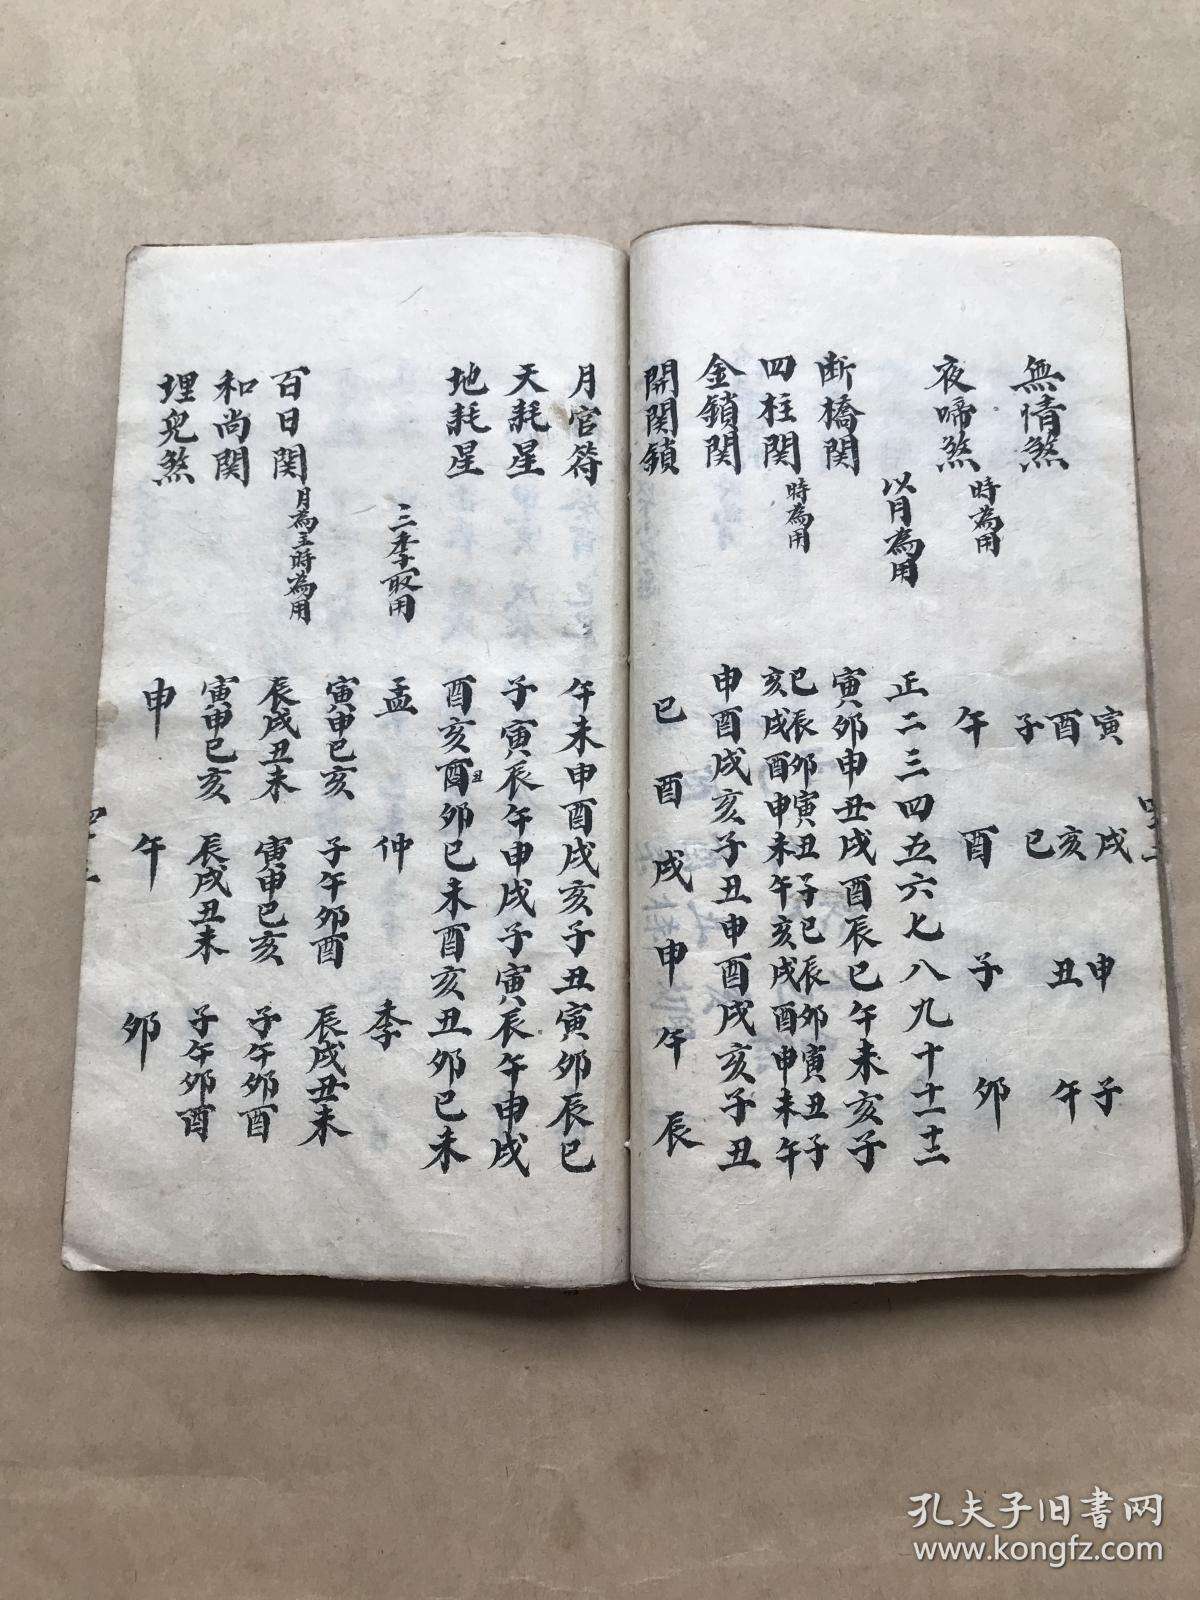 無情煞
寅 戌 申 子
酉 亥 丑 午
子 巳
夜啼煞 時為用 午 酉 子 卯
以月為用 正二三四五六七八九十十一十二
断橋関 寅卯申丑戌酉辰巳午未亥子
四柱関 時為用 巳辰卯寅丑子巳辰卯寅丑子
亥戌酉申未午亥戌酉申未午
金鎖関 申酉戌亥子丑申酉戌亥子丑
開関鎖 巳 酉 戌 申 午 辰
月官符 午未申酉戌亥子丑寅卯辰巳
天耗星 子寅辰午申戌子寅辰午申戌
地耗星 酉亥酉丑卯巳未酉亥丑卯巳未
三季取用 孟 仲 季
寅申巳亥 子午卯酉 辰戌丑未
百日関 月為主時為用 辰戌丑未 寅申巳亥 子午卯酉
和尚関 寅申巳亥 辰戌丑未 子午卯酉
埋兒煞 申 午 卯
孔夫子旧书网
www.kongfz.com